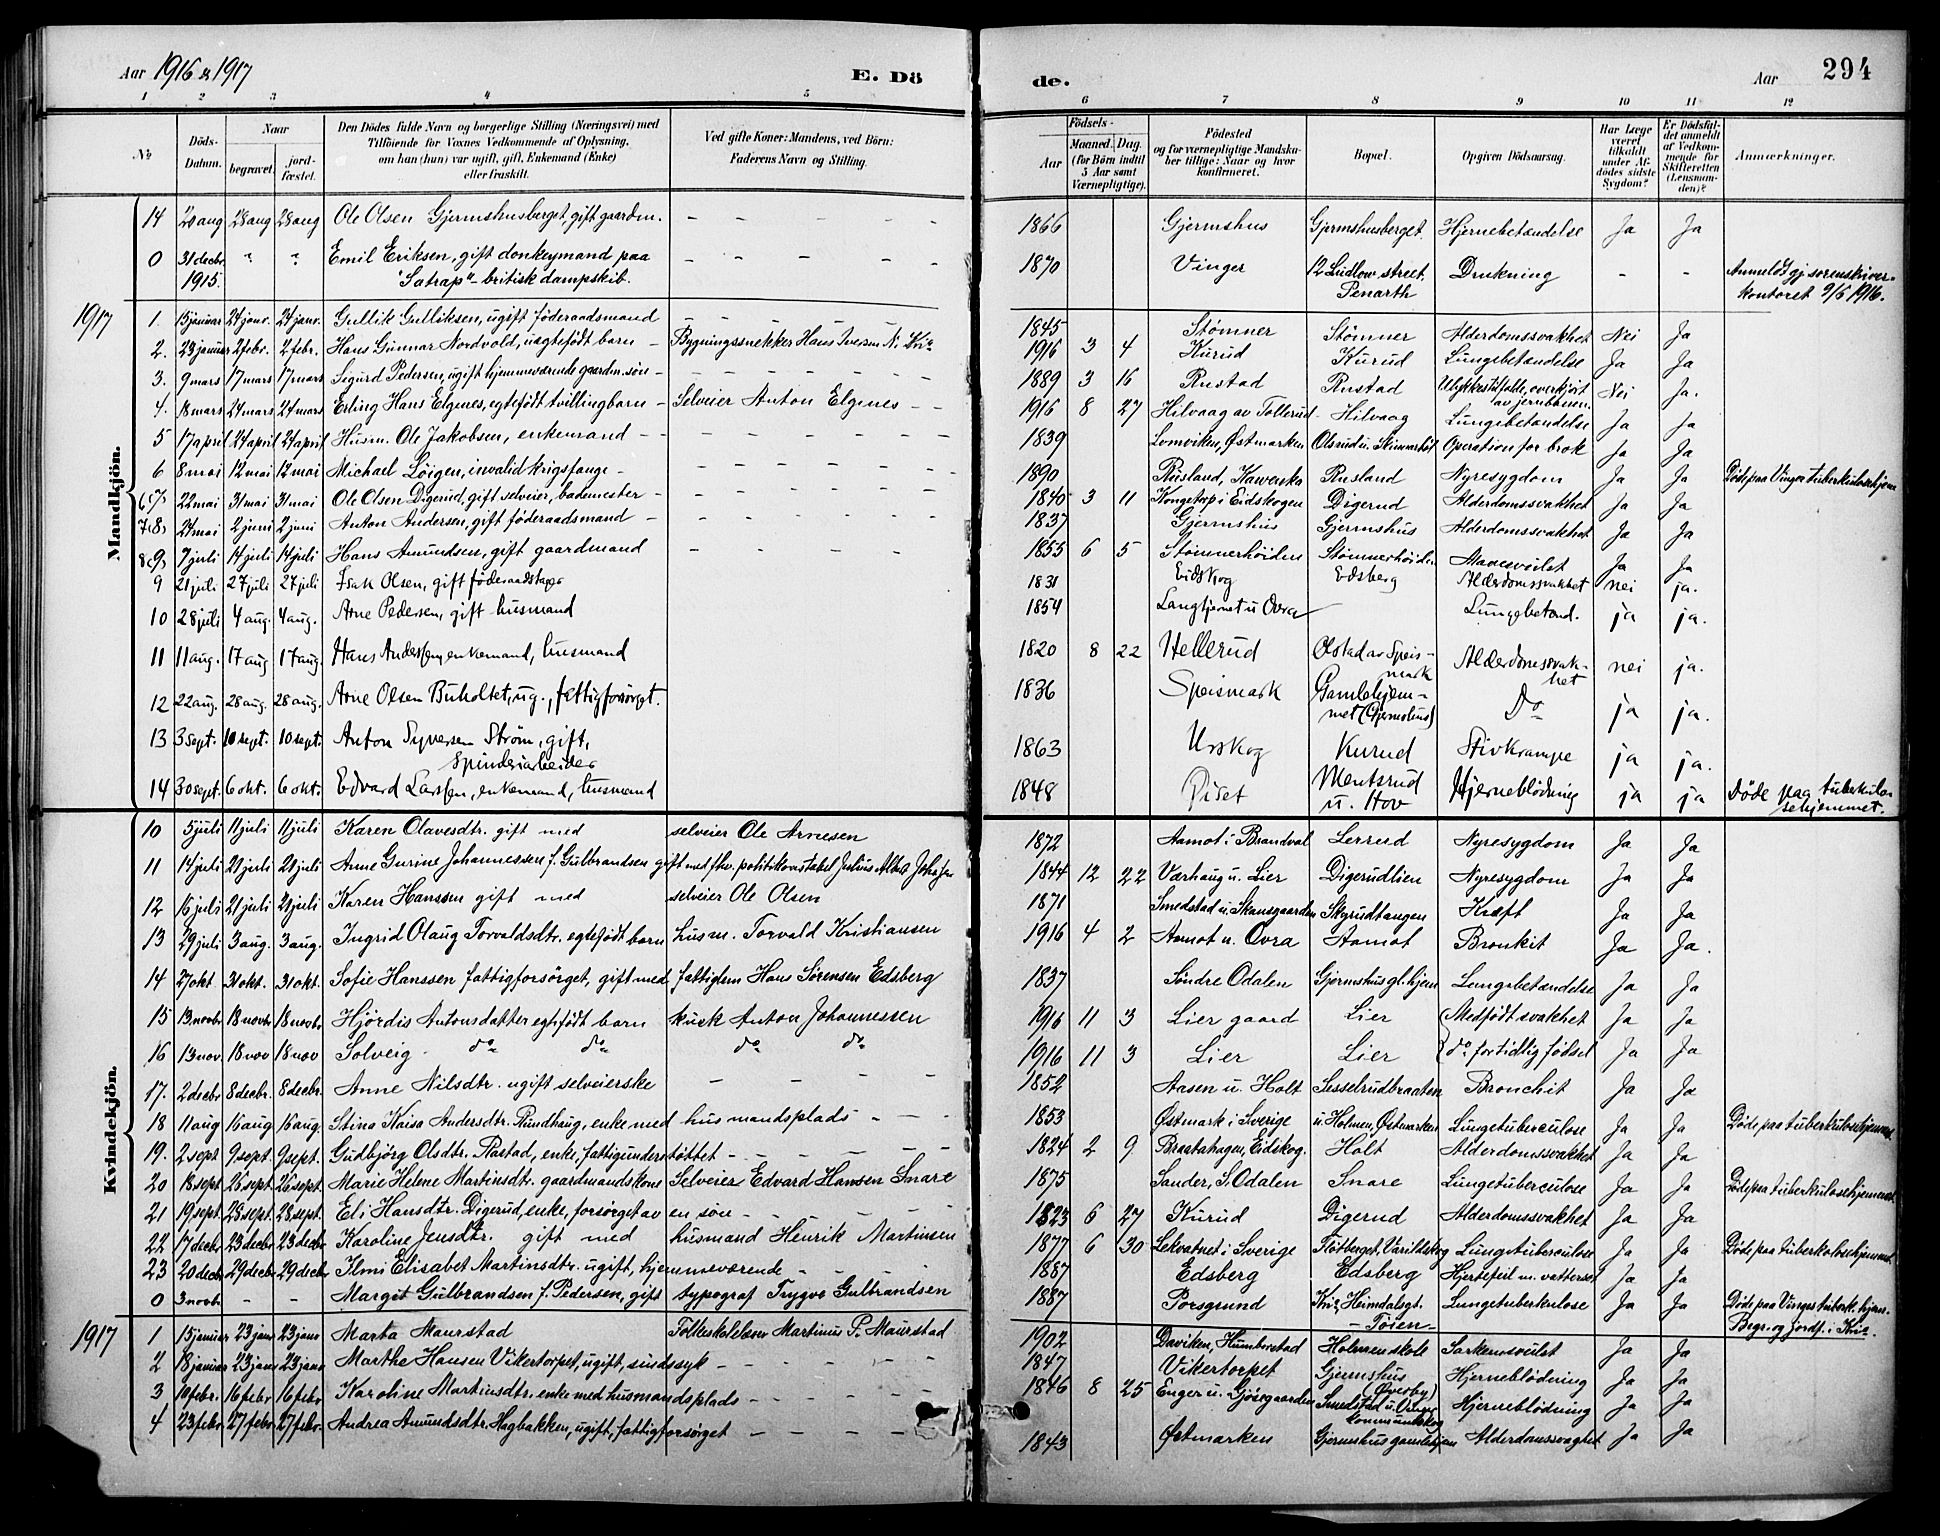 Aar 1916 & 1917 E. Dö de. Aar 294
1 2 3 4 5 6 7 8 9 10 11 12
No Döds-Datum. Naar begravet. jordfæstet. Den Dödes fulde Navn og borgerlige Stilling (Næringsvei) med Tilföiende for Voxnes Vedkommende af Oplysning, om han (hun) var ugift, gift, Enkemand (Enke) eller fraskilt. Ved gifte Koner: Mandens, ved Börn: Faderens Navn og Stilling. Födsels- Aar Maaned. Dag. (for Börn indtil 5 Aar samt Værnepligtige). Födested og for værnepligtige Mandskaber tillige: Naar og hvor konfirmeret. Bopæl. Opgiven Dödsaarsag. Har Læge været tilkaldt under Afdödes sidste Sygdom? Er Dödsfaldet anmeldt af Vedkommende for Skifteretten (Lensmanden)? Anmærkninger.
Mandkjön.
14 20 aug 28 aug 28 aug Ole Olsen Gjermshusberget, gift gaardm. - - - - - 1866 Gjermshus Gjermshusberget Hjernebetændelse Ja Ja
0 31 decbr 1915. " " Emil Eriksen, gift donkeymand paa "Satrap" - britisk dampskib. - - - - - 1870 Vinger 12 Ludlow street, Penarth Drukning - - Anmeldt gj. sorenskriverkontoret 9/5 1916.
1917
1. 15 januar 24 janr. 24 janr. Gullik Gulliksen, ugift föderaadsmand - - - - - 1845 Stømner Stömner Alderdomssvakhet Nei Ja
2. 23 januar 2 febr. 2 febr. Hans Gunnar Nordvold, uægtefödt barn - Bygningssnekker Hans Iversen N. Kria 1916 3 4 Kurud Kurud Lungebetændelse Ja Ja
3. 9 mars 17 mars 17 mars Sigurd Pedersen, ugift hjemmeværende gaardm. sön - - - - - 1889 3 16 Rustad Rustad Ulykkestilfælde, overkjört av jernbanen. Nei Ja.
4. 18 mars 24 mars 24 mars Erling Hans Elgenes, egtefödt tvillingbarn - Selveier Anton Elgenes - - 1916 8 27 Hilvaag av Tollerud Hilvaag Lungebetændelse Ja Ja
5 17 april 24 april 24 april Husm. Ole Jakobsen, enkemand - - - - - 1839 Lomviken, Østmarken Olsrud u. Operation for brok Ja Ja
6 8 mai 12 mai 12 mai Michael Löigen, invalid krigsfange - - - - - 1890 Rusland, Rusland Nyresygdom Ja Ja Döde paa Vinger tuberkulosehjem
7 22 mai 31 mai 31 mai Ole Olsen Digerud, gift selveier, bademester - - - - - 1840 3 11 Kongetorp i Eidskogen Digerud Alderdomssvakhet Ja Ja
8 24 mai 2 juni 2 juni Anton Andersen, gift föderaadsmand - - - - - 1837 Gjermshus Gjermshus Alderdomssvakhet Ja Ja
9 7 juli 14 juli 14 juli Hans Amundsen, gift gaardmand - - - - - 1855 6 5 Stömnerhöiden Stömnerhöiden Mavesvulst Ja Ja
9 21 juli 27 juli 27 juli Isak Olsen, gift föderaadstager 1831 Eidskog Edsberg Alderdomssvakhet nei ja.
10 28 juli 4 aug. 4 aug. Arne Pedersen, gift husmand 1854 Langtjernet u Ovra Lungebetænd. ja ja.
11 11 aug. 17 aug 17 aug. Hans Anderssen, enkemand, husmand 1820 8 22 Hellerud Olstad av Speismark Alderdomssvakhet nei ja.
12 22 aug. 28 aug. 28 aug. Arne Olsen Buholtet, ug., fattigforsörget. 1836 Speismark Gamlehjemmet (Gjermshus) Do ja ja.
13 3 sept. 10 sept. 10 sept. Anton Syversen Ström, gift, Spinderiarbeider 1863 Urskog Kurud Stivkrampe ja ja.
14 30 sept. 6 okt. 6 okt. Edvard Larssen, enkemand, husmand 1848 Piset Mentsrud u. Hov Hjerneblödning ja ja Döde paa tuberkulosehjemmet.
Kvindekjön.
10 5 juli 11 juli 11 juli Karen Olavesdtr. gift med selveier Ole Arnesen 1872 Aamot i Brandval Lerrud Nyresygdom Ja Ja
11 14 juli 21 juli 21 juli Anne Gurine Johannessen f. Gulbrandsen gift med fhv. politikonstabel Julius Albert Johansen 1844 12 22 Varhaug u. Lier Digerudlien Nyresygdom Ja Ja
12 16 juli 21 juli 21 juli Karen Hanssen gift med selveier Ole Olsen 1871 Smedstad u. Skansgaarden Skyrudtangen Kræft Ja Ja
13 29 juli 3 aug. 3 aug. Ingrid Olaug Torvaldsdtr. egtefödt barn husm. Torvald Kristiansen 1916 4 2 Aamot u. Ovra Aamot Bronkit Ja Ja.
14 27 okt 31 okt. 31 okt. Sofie Hanssen fattigforsörget, gift med fattiglem Hans Sörensen Edsberg 1837 Söndre Odalen Gjermshus gl. hjem Lungebetændelse Ja Ja
15 13 novbr 18 novbr 18 novbr Hjördis Antonsdatter egtefödt barn kusk Anton Johannessen 1916 11 3 Lier gaard Lier Medfödt svakhet Ja Ja
16 13 nov. 18 nov 18 nov Solveig do do do do 1916 11 3 Lier Lier do fortidlig födsel Ja Ja
17. 2 decbr 8 decbr. 8 decbr. Anne Nilsdtr. ugift selveierske - - - - 1852 Aasen u. Holt Sesselrudbraaten Bronchit Ja Ja
18 11 aug 16 aug 16 aug. Stina Kaisa Andersdtr. Rundhaug, enke med husmandsplads - - - 1853 Østmark i Sverige u. Holmen, Østmarken Lungetuberculose Ja Ja Döde paa tuberkulosehjemmet
19. 2 sept 9 sept. 9 sept. Gudbjörg Olsdtr. Rastad, enke, fattigunderstöttet - - - - - 1824 2 9 Braatahagen, Eidskog. Holt Alderdomssvakhet Ja Ja
20 18 sept 26 sept. 26 sept. Marie Helene Martinsdtr. gaardmandskone Selveier Edvard Hansen Snare 1875 Sander, S. Odalen Snare Lungetuberculose Ja Ja Döde paa tuberkulosehjemmet
21 19 sept. 28 sept. 28 sept. Eli Hansdtr. Digerud, enke, forsörget av en sön - - - - - 1823 6 27 Kurud Digerud Alderdomssvakhet Ja Ja
22 17 decbr 23 decbr 23 decbr Karoline Jensdtr. gift med husmand Henrik Martinsen 1877 6 30 Lekvatnet i Sverige Flötberget, Varildskog Lungetuberculose Ja Ja Döde paa tuberkolosehjemmet
23 20 decbr 29 decbr 29 decbr Ilmi Elisabet Martinsdtr. ugift, hjemmeværende - - - - 1887 Edsberg Edsberg Hjertefeil m. vattersot Ja Ja
0 3 novbr - - Margit Gulbrandsen f. Pedersen, gift typograf Trygve Gulbrandsen 1887 Porsgrund Kria, Heimdalsgt. - Töien - Lungetuberkulose Ja Ja Döde paa Vinger tuberk. hjem. Begr. og jordf. i Kria.
1917
1 15 januar 23 janr 23 janr Marta Maurstad Folkeskolelærer Martinus P. Maurstad 1902 Daviken, Humberstad Holmen skole Sarkomsvulst Ja Ja
2 18 januar 23 janr 23 janr Marthe Hansen Vikertorpet, ugift, sindssyk - - - - - 1847 Vikertorpet Gjermshus (Överby) Hjerneblödning Ja Ja
3 10 febr. 16 febr 16 febr Karoline Martinsdtr. enke med husmandsplads - - - - 1846 8 25 Enger u. Gjösegaarden Smedstad u. kommuneskog Hjerneblödning Ja Ja
4 23 febr 27 febr 27 febr. Andrea Amundsdtr. Hagbakken, ugift, fattigforsörget - - - - 1843 Østmarken Gjermshus gamlehjem Alderdomssvaghet Ja Ja